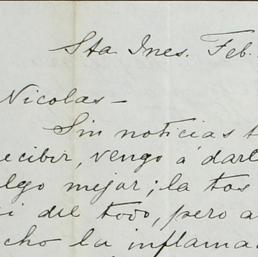 Sta. Ines. Feb.
Nicolas—
Sin noticias t
ecibir, vengo á darl
lgo mejor; la tos
i del todo, pero a
cho la inflama